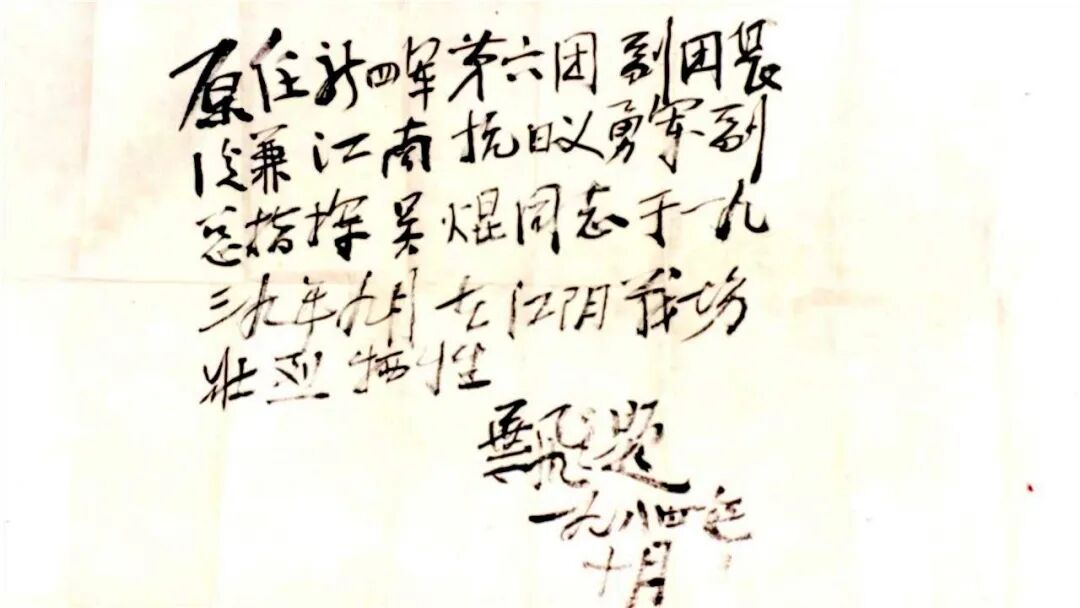 原任新四军第六团副团長
後兼江南抗日义勇军副
总指挥吴焜同志于一九
三九年九月在江阴战场
壮烈牺牲
葉飛题
一九八四年
十月